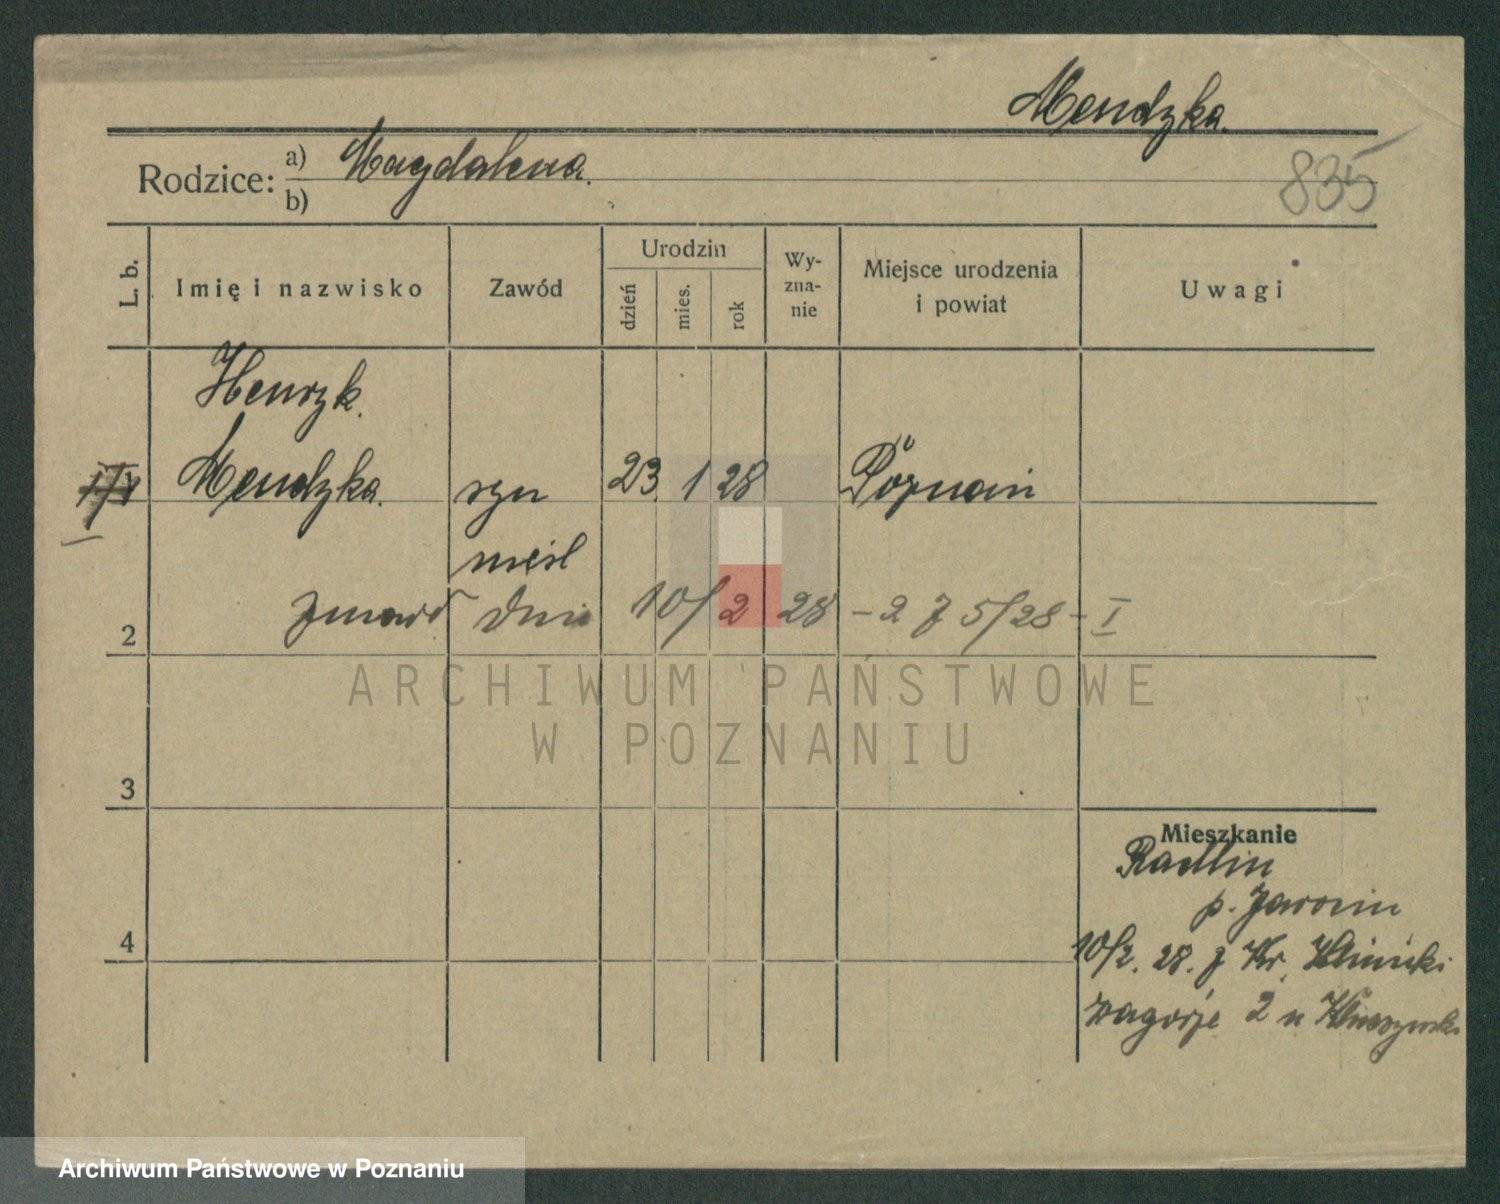 Mendzka.
Rodzice: a) Magdalena.
b)
835
L. b. Imię i nazwisko Zawód Urodzin dzień mies. rok Wy-zna-nie Miejsce urodzenia i powiat Uwagi
Henryk.
Mendzka. syn 23 1 28 Poznań
nieśl
2 zmarł dnia 10/2 28 - 2 Z 5/28 - I
ARCHIWUM PAŃSTWOWE
W POZNANIU
3
Mieszkanie
Radlin
p. Jarocin
4
10/2. 28. z Kr. Kliniki
Zagórze 2 n
Archiwum Państwowe w Poznaniu